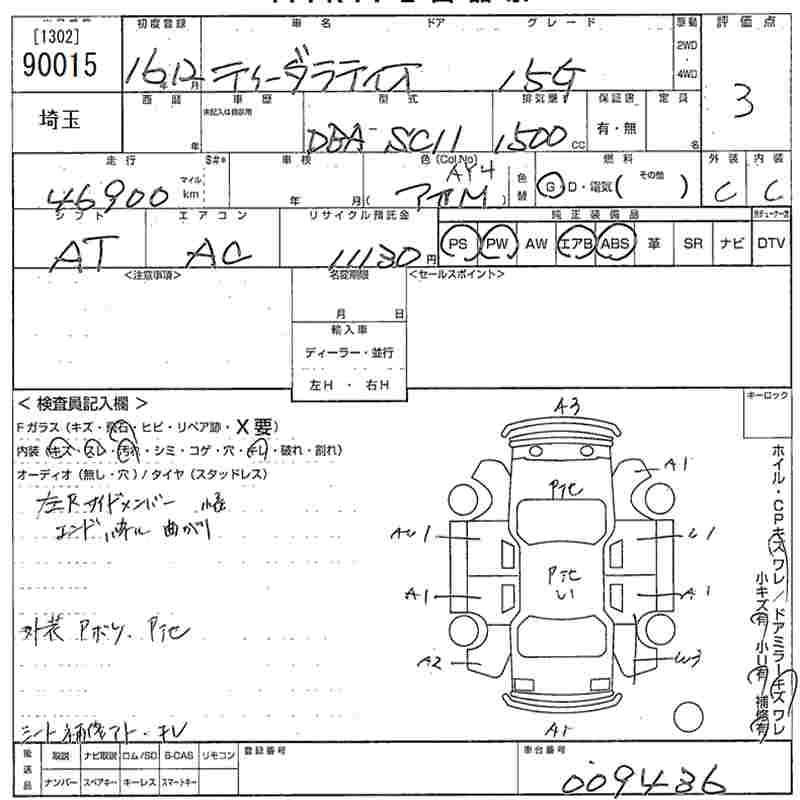 [1302]
90015
初度登録 車名 ドア グレード 駆動 評価点
16年12月 ティーダラティオ 15G 2WD・4WD 3
埼玉
西暦 車歴 型式 排気量 保証書 定員
年 未記入は自家用 DBA-SC11 1500CC 有・無 名
走行 車検 色(Col,No) 燃料 外装 内装
46900 マイル km 年 月 AY4 アオM 色替 G・D・電気( その他 ) C C
シフト エアコン リサイクル預託金 純正装備品
AT AC 11130円 PS PW AW エアB ABS 革 SR ナビ DTV
<注意事項> 名変期限 <セールスポイント>
月 日
輸入車
ディーラー・並行
左H ・ 右H
< 検査員記入欄 > キーロック
Fガラス(キズ・飛石・ヒビ・リペア跡・X要)
内装(キズ・スレ・汚れ・シミ・コゲ・穴・キレ・破れ・割れ)
オーディオ(無し・穴)/タイヤ(スタッドレス)
左Rサイドメンバー
エンドパネル 曲がり
外装 Pボケ、P他
シート補修アト・キレ
A3
A1
P他
AU1 U1
P他 U1
A1 A1
A2 W3
A1
ホイル・CPキズワレ/ドアミラーキズワレ
小キズ有 小U有 補修有
後送品 取説 ナビ取説 ロム/SD B-CAS リモコン 登録番号 車台番号
ナンバー スペアキー キーレス スマートキー 009436